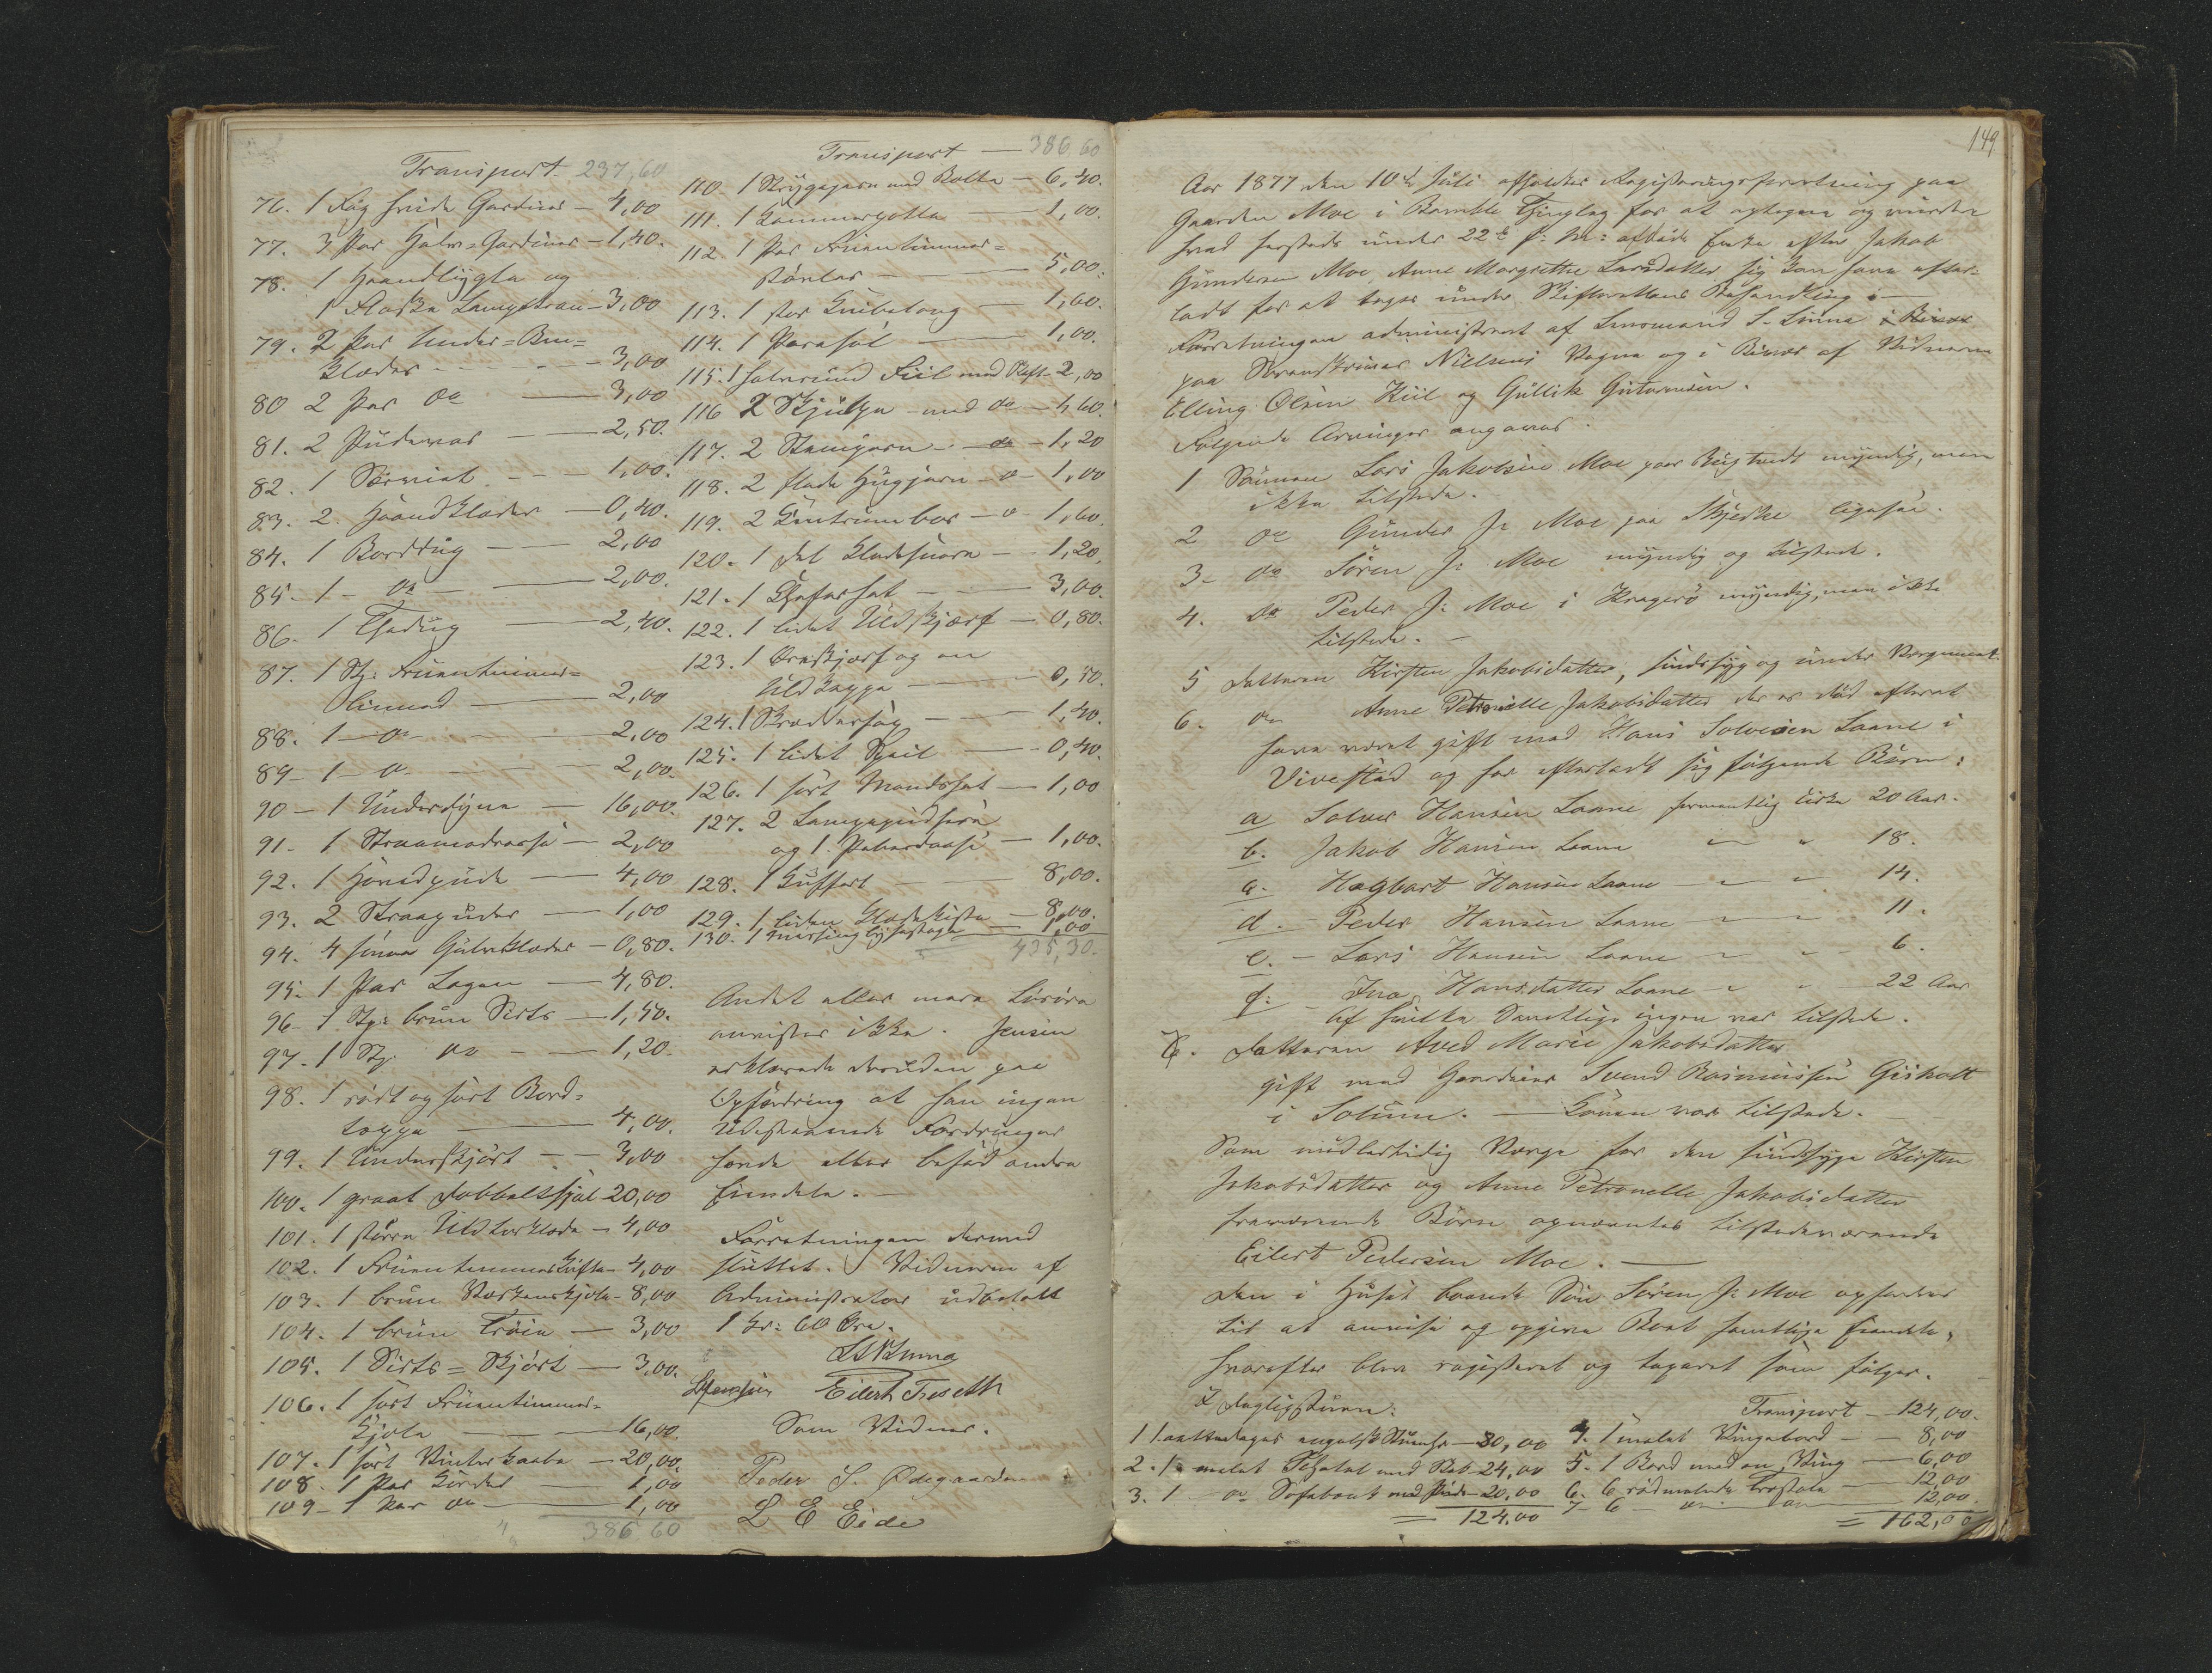 Transport 237,60
76. 1 Fag hvide Gardiner — 4,00
77. 3 Par Halv=Gardiner — 1,40.
78. 1 Haandlygte og
1 Flaske Lampetran — 3,00
79. 2 Par Under=Ben=
klæder — 3,00
80 2 Par do — 3,00
81. 2 Pudevar — 2,50.
82. 1 Serviet — 1,00.
83. 2 Haandklæder — 0,40.
84. 1 Borddug — 2,00
85. 1 - do — 2,00.
86. 1 Thedug — 2,40.
87. 1 St: Fruentimmer=
Linned — 2,00
88. 1 — do — 2,00
89 - 1 — do — 2,00.
90 - 1 Underdyne — 16,00.
91 - 1 Straamadrasse — 2,00
92. 1 Hovedpude — 4,00
93. 2 Straapuder — 1,00
94. 4 smaa Gulvklæder — 0,80.
95. 1 Par Lagen — 4,80.
96 - 1 St: brun Sirts — 1,50.
97. 1 St: do — 1,20.
98. 1 rødt og sort Bord=
teppe — 4,00.
99. 1 Underskjørt — 3,00
100. 1 graat Dobbeltsjal 20,00
101. 1 større Uldtørklæde — 4,00
102. 1 Fruentimmerkufte 4,00
103. 1 brun Værkenskjole 8,00
104. 1 brun Trøie — 3,00
105. 1 Sirts=Skjørt — 3,00.
106. 1 sort Fruentimmer=
kjole — 16,00.
107. 1 sort Vinterkaabe — 20,00.
108. 1 Par — 1,00
109 - 1 Par do — 1,00
386.60
Transport — 386.60
110. 1 Strygejern med Bolte — 6,40.
111. 1 Kammerpotte — 1,00.
112. 1 Par Fruentimmer=
støvler — 5,00.
113. 1 stor Knibetang — 1,60.
114. 1 Parasol — 1,00.
115. 1 halvrund Fiil med Skaft 2,00
116 2 med do — 1,60.
117. 2 Stemjern — do — 1,20
118. 2 flade Hugjern — do — 1,00
119. 2 Centrumbor — do — 1,60.
120. 1 Del Klædesnore — 1,20.
121. 1 — 3,00.
122. 1 lidet Uldskjærf — 0,80.
123. 1 og en
Uldkappe — 0,50.
124. 1 — 1,40.
125. 1 lidet Speil — 0,40.
126. 1 sort Mandshat — 1,00
127. 2 Lampepudsere
og 1 Peberdaase — 1,00.
128. 1 Kuffert — 8,00.
129. 1 liden Klædekiste — 8,00.
130. 1 messing lysestage — 1,00
435,30.
Andet eller mere Løsøre
anvistes ikke. Jensen
erklærede desuden paa
Opfordring at han ingen
Udestaaende Fordringer
havde eller besad andre
Eiendele. —
Forretningen dermed
sluttet. Vidnerne af
Administrator udbetalt
1 Kr: 60 Øre.
Eilert Treseth
Som Vidner.
Peder S. Ødegaarden
L E Eide
149
Aar 1877 den 10de Juli afholdtes Registreringsforretning paa
Gaarden Moe i Bamble Thinglag for at optegne og vurdere
hvad hersteds under 22de f: M: afdøde Enke efter Jakob
Gundersen Moe, Anne Margrethe Larsdatter sig kan have efter=
ladt for at tages under Skifterettens Behandling. —
Forretningen administreret af Lensmand S. Linna i Bivær
paa Sorenskriver Nielsens Vegne og i Bivær af Vidnerne
Elling Olsen Kiil og Gullik Gutormsen.
Følgende Arvinger angaves.
1 Sønnen Lars Jakobsen Moe paa myndig, men
ikke tilstede.
2 do Gunder J: Moe paa ligesaa.
3 - do Søren J: Moe myndig og tilstede.
4. do Peder J: Moe i Kragerø myndig, men ikke
tilstede. —
5 Datteren Kirsten Jakobsdatter, sindssyg og under Værgemaal.
6. do Anne Petronelle Jakobsdatter der er død efterat
have været gift med Hans Solvesen Laane i
Vivestad og har efterladt sig følgende Børn:
a Solver Hansen Laane formentlig cirka 20 Aar.
b. Jakob Hansen Laane — " — " 18.
c. Hagbart Hansen Laane — " — " 14.
d. Peder Hansen Laane — " — " 11.
e. - Lars Hansen Laane — " — " 6.
f. Ina Hansdatter Laane — " — " 22 Aar
Af hvilke Samtlige ingen var tilstede.
7. Datteren Aved Marie Jakobsdatter
gift med Gaardeier Svend Rasmussen Gisholt
i Solum. — Konen var tilstede.
Som midlertidig Værge for den sindssyge Kirsten
Jakobsdatter og Anne Petronelle Jakobsdatter
fraværende Børn opnævntes tilstedeværende
Eilert Pedersen Moe. —
Den i Huset boende Søn Søren J: Moe opfordres
til at anvise og opgive Boet samtlige Eiendele,
hvorefter blev registreret og taxeret som følger.
I Dagligstuen.
1 1 aattedages engelsk Stueuhr — 80,00
2. 1 malet Skatol med Skab 24,00
3. 1 do Sofabænk med Pude 20.00
= 124.00
Transport — 124,00.
4. 1 malet Vingebord — 8,00
5. 1 Bord med en Ving — 6,00
6. 6 rødmalede Træstole — 12,00
7 - 6 do do — 12,00.
= 162,00